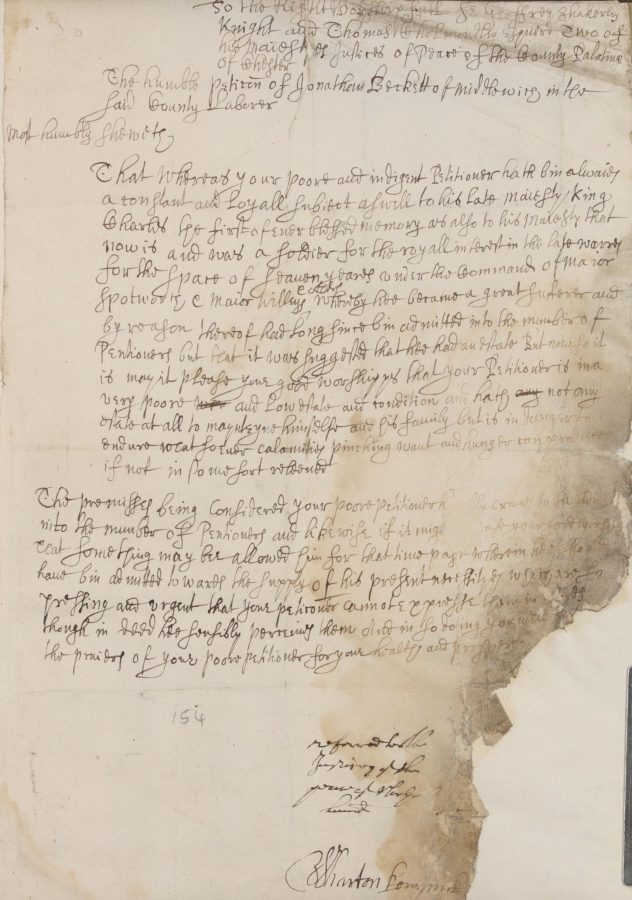 To the Right Worshipfull Sr Geffrey Shakerly
Knight and Thomas Cholmondley Esquire Two of
his Maiesties Justices of Peace of the County Palatine
of Chester
The humble peticon of Jonathan Beckett of Middlewich in the
said County Laborer
Most humbly sheweth
That Whereas your poore and indigent Petitioner hath bin alwaies
a constant and Loyall subiect aswill to his late maiesty King
Charles the first of ever blessed memory as also to his Maiesty that
now is and was a soldier for the royall interest in the late warres
for the space of seaven yeares under the Command of Maior
Spotworth & Maior Whereby hee became a great sufferer and
by reason thereof had Long since bin admitted into the number of
Pentioners but that it was suggested that hee had an estate But now so it
is may it please your good worshipps that your Petitioner is in a
very poore and Low estate and condition and hath any not any
estate at all to maynteyne himselfe and his family but is in danger to
endure what soever calamities pinching want and hunger can produce
if not in some sort releeved
The premisses being Considered your poore petitioner h ly crave to be
into the number of Pentioners and likewise if it mig at your good
that something may bee allowed him for that time past wherein hee should
have bin admitted towards the supply of his present necessityes which are so
pressing and urgent that your peticoner cannot expresse them in es
though in deed hee sensibly perceives them And in so doing you will
the praiers of your poore petitioner for your health and prosperi
154
referred to the
Justices of the
peace of
hund
Wharton